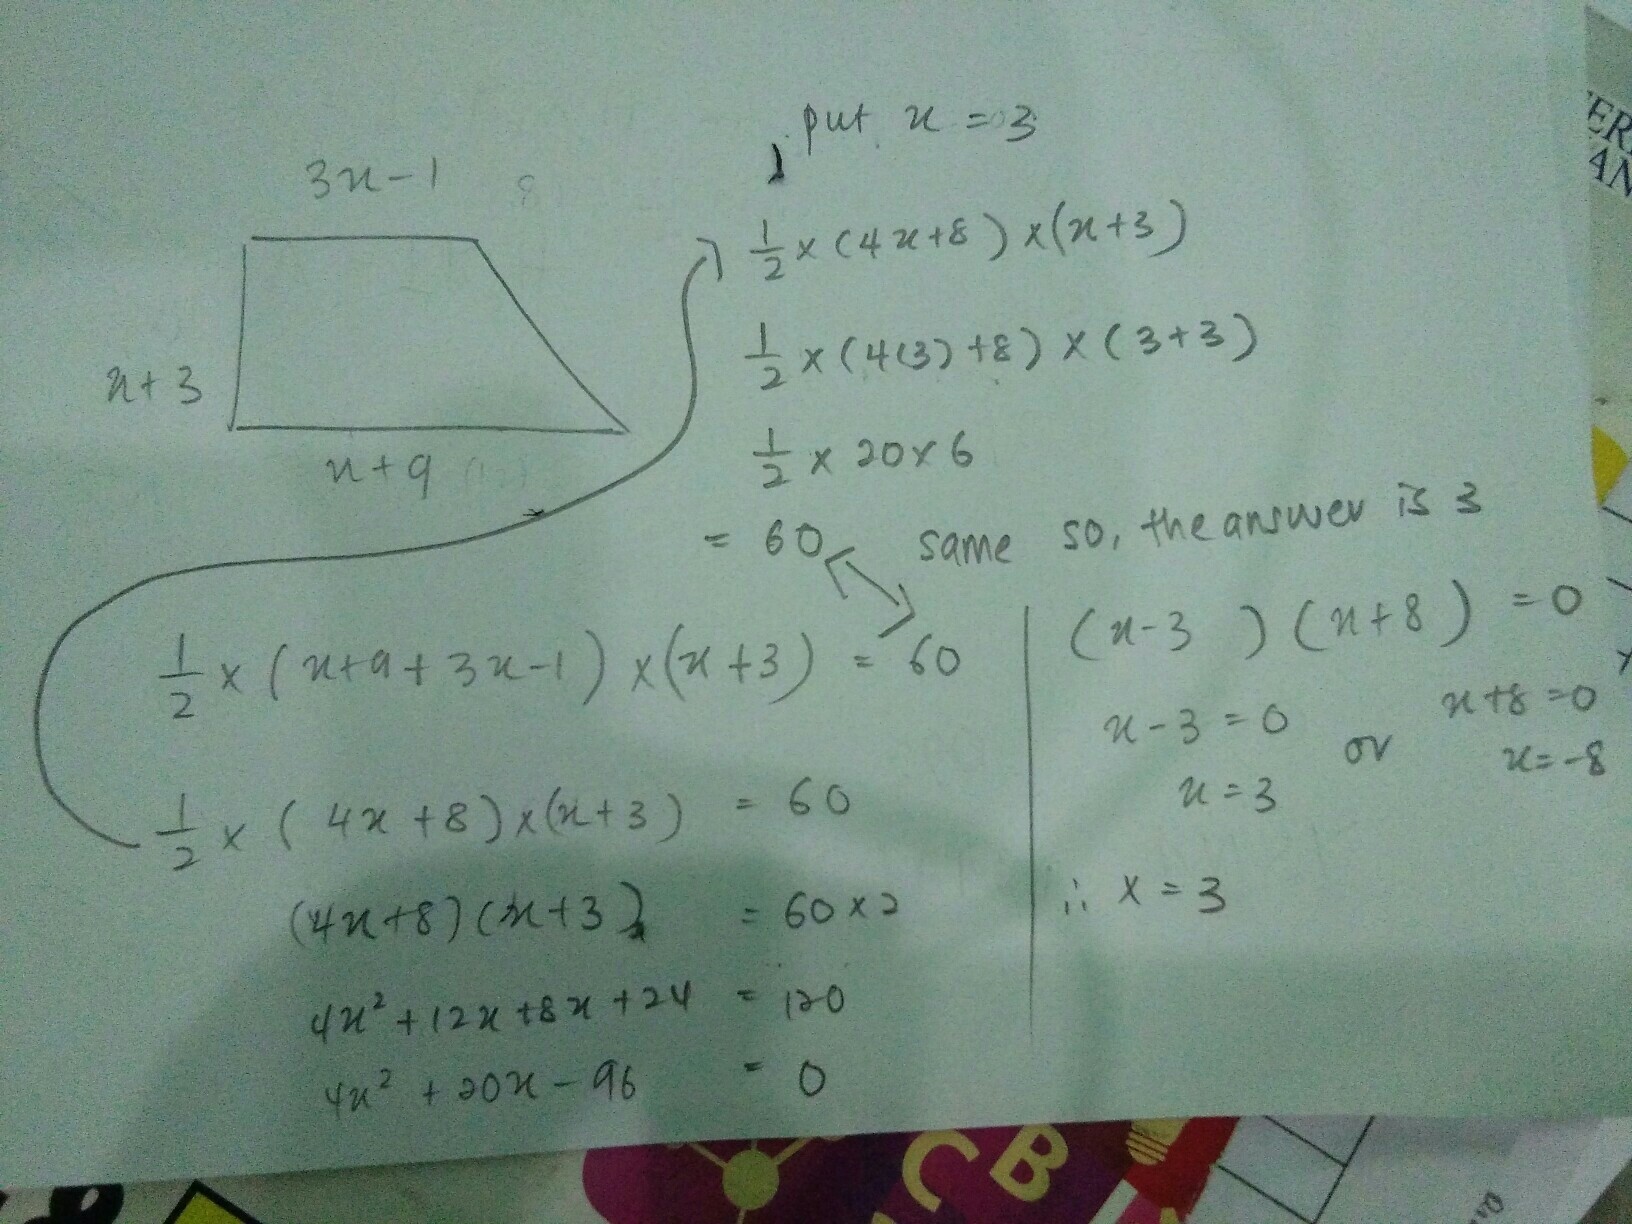 3x-1
x+3
x+9
put x = 3
1/2 × (4x+8) × (x+3)
1/2 × (4(3)+8) × (3+3)
1/2 × 20 × 6
= 60 same so, the answer is 3
1/2 × (x+9+3x-1) × (x+3) = 60
1/2 × (4x+8) × (x+3) = 60
(4x+8)(x+3) = 60×2
4x² + 12x + 8x + 24 = 120
4x² + 20x - 96 = 0
(x-3)(x+8) = 0
x-3 = 0 or x+8 = 0
x = 3 x = -8
∴ x = 3
CB